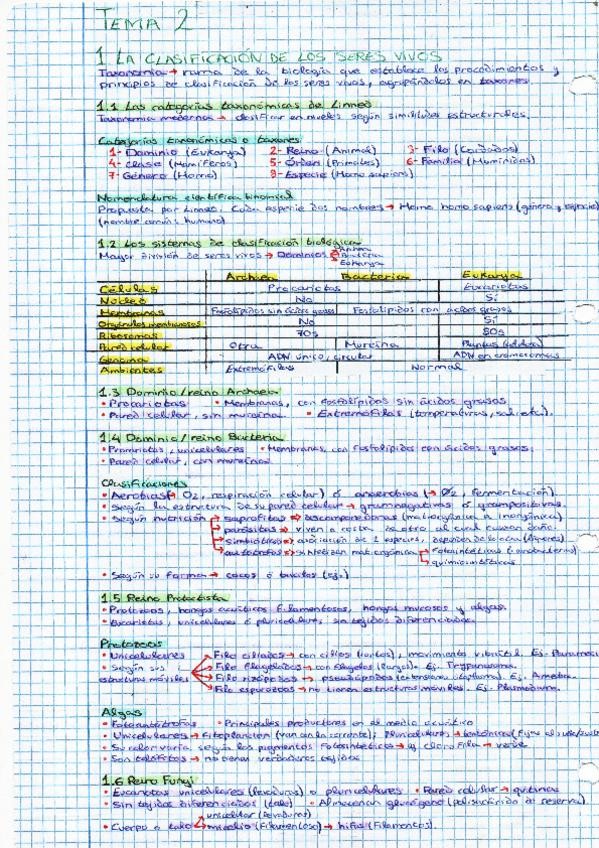 TEMA 2
1 LA CLASIFICACIÓN DE LOS SERES VIVOS
Taxonomía → rama de la biología que establece los procedimientos y
principios de clasificación de los seres vivos, agrupándolos en taxones.
1.1 Las categorías taxonómicas de Linneo
Taxonomía moderna → clasificar en niveles según similitudes estructurales.
Categorías taxonómicas o taxones
1- Dominio (Eukarya) 2- Reino (Animal) 3- Filo (Cordados)
4- Clase (Mamíferos) 5- Orden (Primates) 6- Familia (Homínidos)
7- Género (Homo) 8- Especie (Homo sapiens)
Nomenclatura científica binomial
Propuesta por Linneo. Cada especie dos nombres → Homo homo sapiens (género y especie)
(nombre común: humano)
1.2 Los sistemas de clasificación biológica
Mayor división de seres vivos → Dominios Archea
Bacteria
Eukarya
Archaea Bacteria Eukarya
Células Procariotas Eucariotas
Núcleo No Sí
Membranas Fosfolípidos sin ácidos grasos Fosfolípidos con ácidos grasos
Orgánulos membranosos No Sí
Ribosomas 70s 80s
Pared celular Otra Mureína Plantas (celulosa)
Genoma ADN único, circular ADN en cromosomas
Ambientes Extremófilos Normal
1.3 Dominio/reino Archaea
• Procariotas • Membranas, con fosfolípidos sin ácidos grasos
• Pared celular, sin mureína. • Extremófilas (temperaturas, sal, etc).
1.4 Dominio/reino Bacteria
• Procariotas, unicelulares • Membranas, con fosfolípidos con ácidos grasos.
• Pared celular, con mureína.
Clasificaciones
• Aerobias (→ O2, respiración celular) ó anaerobias (→ O2, fermentación).
• Según la estructura de su pared celular → gramnegativas ó grampositivas.
• Según nutrición → saprófitas → descomponedoras (mat. orgánica → inorgánica)
→ parásitas → viven a costa de otro al cual causan daño.
→ Simbióticas → asociación de 2 especies,
→ autótrofas → sintetizan mat. orgánica → fotosintéticas (cianobacterias)
→ quimiosintéticas
• Según su forma → cocos ó bacilos (ej.)
1.5 Reino Protoctista
• Protozoos, hongos acuáticos filamentosos, hongos mucosos y algas.
• Eucariotas, unicelulares ó pluricelulares, sin tejidos diferenciados.
Protozoos
• Unicelulares → Filo ciliados → con cilios (cortos), movimiento vibrátil. Ej.
• Según sus → Filo flagelados → con flagelos (largos). Ej. Trypanosoma.
estructuras móviles → Filo rizópodos → pseudópodos Ej. Ameba.
→ Filo esporozoos → no tienen estructuras móviles. Ej. Plasmodium.
Algas
• Fotoautótrofas • Principales productores en el medio acuático
• Unicelulares → fitoplancton (van con la corriente); Pluricelulares → bentónicas
• Su color varía según los pigmentos fotosintéticos → clorofila → verde
• Son talófitas → no tienen verdaderos tejidos
1.6 Reino Fungi
• Eucariotas unicelulares (levaduras) o pluricelulares • Pared celular → quitina
• Sin tejidos diferenciados (talo) • Almacenan glucógeno (polisacárido de reserva).
• Cuerpo o talo → unicelular (levaduras)
→ micelio (filamentoso) → hifas (filamentos).